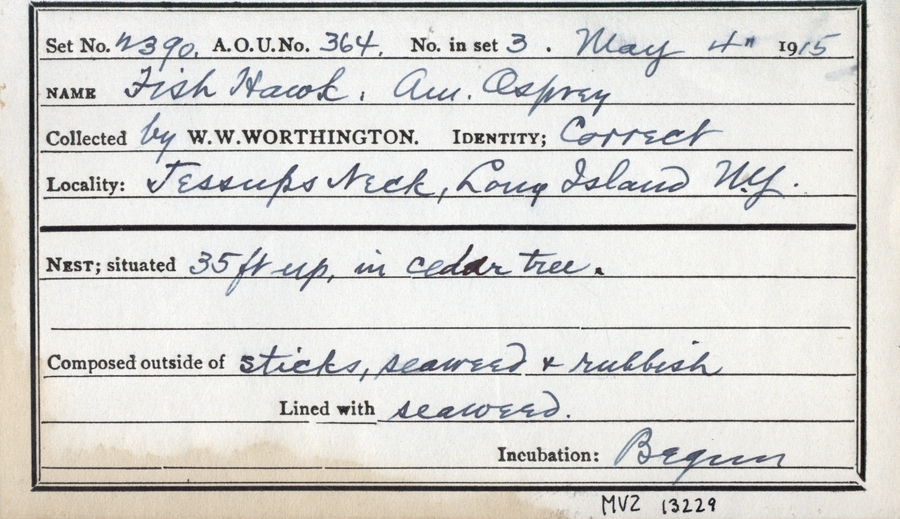 Set No. 390. A.O.U.No. 364. No. in set 3. May 4" 1915
NAME Fish Hawk. Am. Osprey
Collected by W.W.WORTHINGTON. IDENTITY; Correct
Locality: Jessups Neck, Long Island N.Y.
NEST; situated 35 ft up, in cedar tree.
Composed outside of sticks, seaweed & rubbish
Lined with seaweed.
Incubation: Begun
MVZ 13229